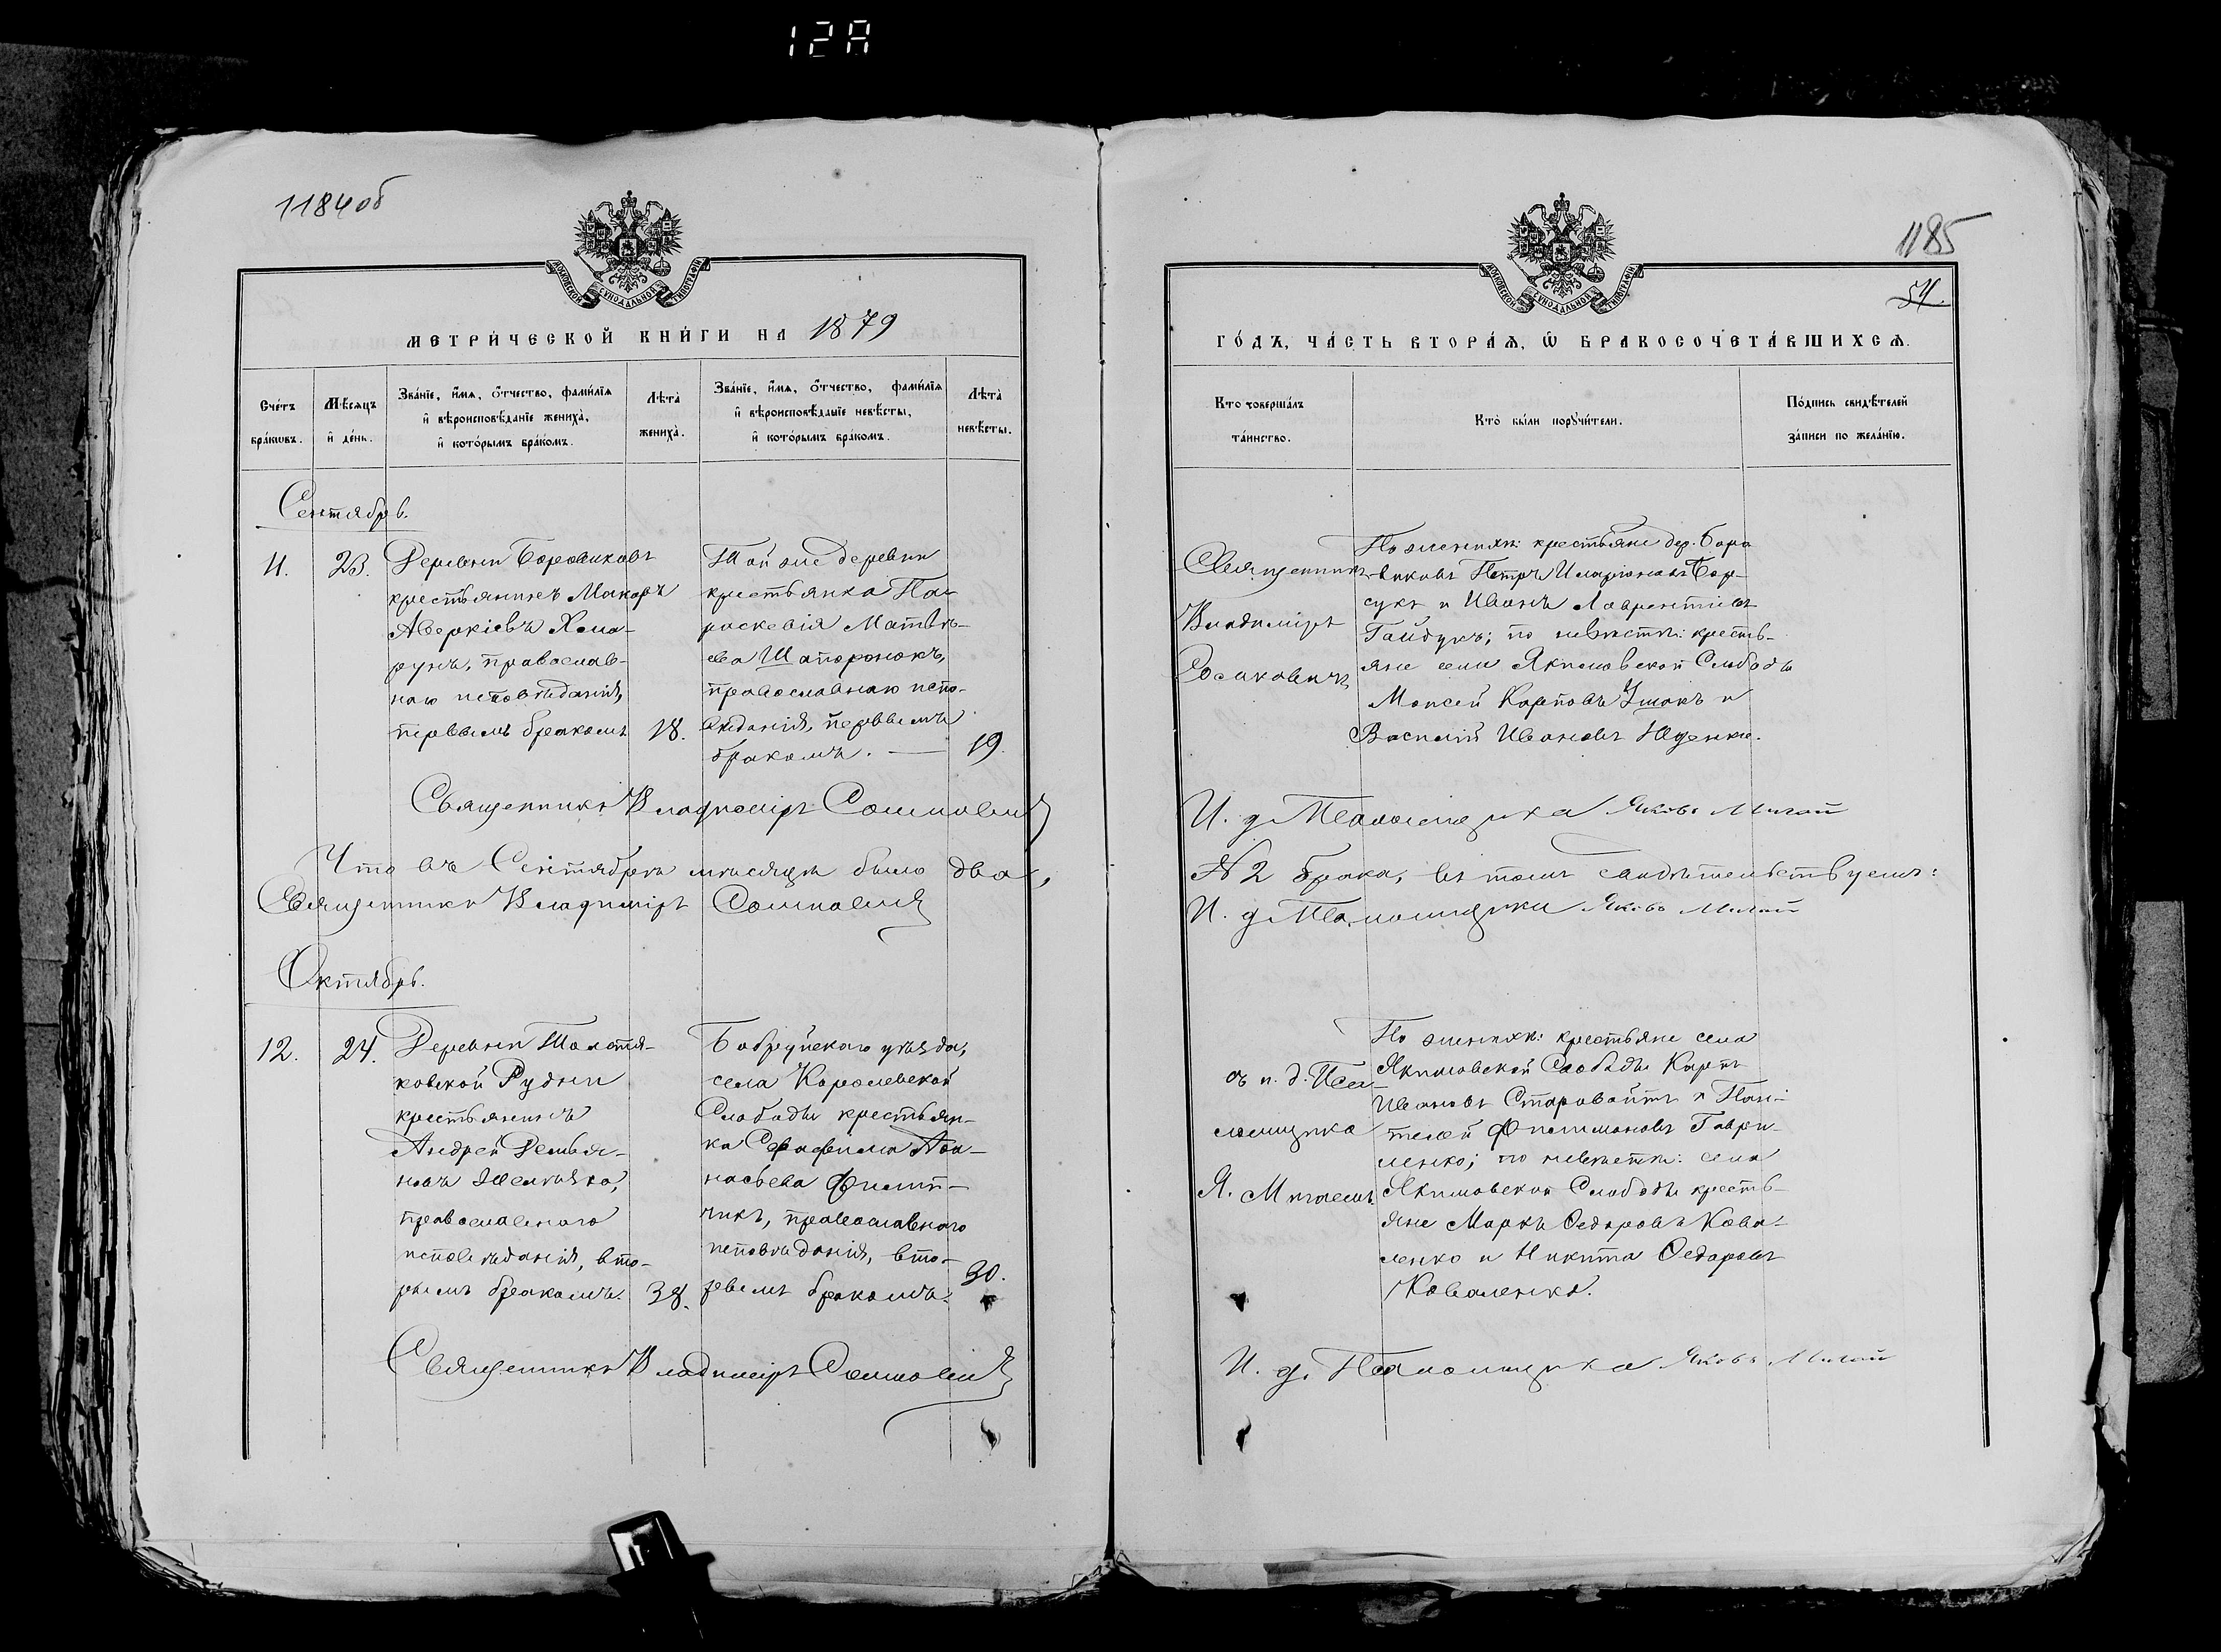 12A
1184об
МОСКОВСКОЙ СѴНОДАЛЬНОЙ ТИПОГРАФІИ
МЕТРИ́ЧЕСКОЙ КНИ́ГИ НА 1879
Сче́тъ бра́ковъ.
Мѣ́сяцъ и де́нь.
Зва́нїе, и́мя, о́тчество, фами́лїя
и҆ вѣроисповѣ́данїе жениха̀,
и҆ кото́рымъ бра́комъ.
Лѣта̀ жениха̀.
Зва́нїе, и́мя, о́тчество, фами́лїя
и҆ вѣроисповѣ́данїе невѣ́сты,
и҆ кото́рымъ бра́комъ.
Лѣта̀ невѣ́сты.
Сентябрь.
11.
23.
Деревни Боровиковъ
крестьянинъ Макаръ
Аверкіевъ Хома-
рунъ, православ-
наго исповѣданія,
первымъ бракомъ
18.
Той же деревни
крестьянка Па-
раскевія Матвѣ-
ева Шапоронокъ,
православнаго испо-
вѣданія, первымъ
бракомъ. —
19.
Священникъ Владиміръ
Что въ Сентябрѣ мѣсяцѣ было два,
Священникъ Владиміръ
Октябрь.
12.
24.
Деревни
ковской Рудни
крестьянинъ
Андрей Демья-
новъ
православнаго
исповѣданія, вто-
рымъ бракомъ.
38.
Бобруйскаго уѣзда,
села Королевской
Слободы крестьян-
ка Серафима Аѳа-
насьева Филип-
чикъ, православнаго
исповѣданія, вто-
рымъ бракомъ.
30.
Священникъ Владиміръ
1185
54.
МОСКОВСКОЙ СѴНОДАЛЬНОЙ ТИПОГРАФІИ
ГО́ДЪ, ЧА́СТЬ ВТОРА́Ѧ, Ѡ҆ БРАКОСОЧЕТА́ВШИХСѦ.
Кто̀ соверша́лъ
та́инство.
Кто̀ бы́ли порꙋчи́тели.
По́дпись свидѣ́телей
за́писи по жела́нїю.
Священникъ
Владиміръ
По женихѣ: крестьяне дер. Боро
виковъ Петръ Иларіоновъ Бор-
сукъ и Иванъ Лаврентіевъ
Гайдукъ; по невѣстѣ: кресть-
яне села Якимовской Слободы
Моисей Карповъ и
Василій Ивановъ Юденко.
И. д. Псаломщика Яковъ
№ 2 брака, въ томъ свидѣтельствуемъ:
И. д. Псаломщика Яковъ
съ и. д. Пса-
ломщика
Я.
По женихѣ: крестьяне села
Якимовской Слободы Карпъ
Ивановъ Старовойтъ и Пан-
телей Филимоновъ Гаври-
ленко; по невѣстѣ: села
Якимовской Слободы кресть-
яне Маркъ Ѳедоровъ Кова-
ленко и Никита Ѳедоровъ
Коваленко.
И. д. Псаломщика Яковъ